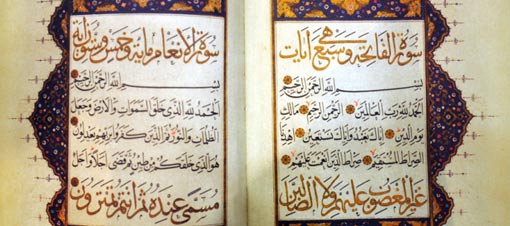 سورة الفاتحة وهي سبع آيات
بسم الله الرحمن الرحيم
الحمد لله رب العالمين الرحمن الرحيم مالك
يوم الدين إياك نعبد وإياك نستعين اهدنا
الصراط المستقيم صراط الذين أنعمت عليهم
غير المغضوب عليهم ولا الضالين
سورة الأنعام ماية وخمس وستون آية
بسم الله الرحمن الرحيم
الحمد لله الذي خلق السموات والأرض وجعل
الظلمات والنور ثم الذين كفروا بربهم يعدلون
هو الذي خلقكم من طين ثم قضى أجلا وأجل
مسمى عنده ثم أنتم تمترون